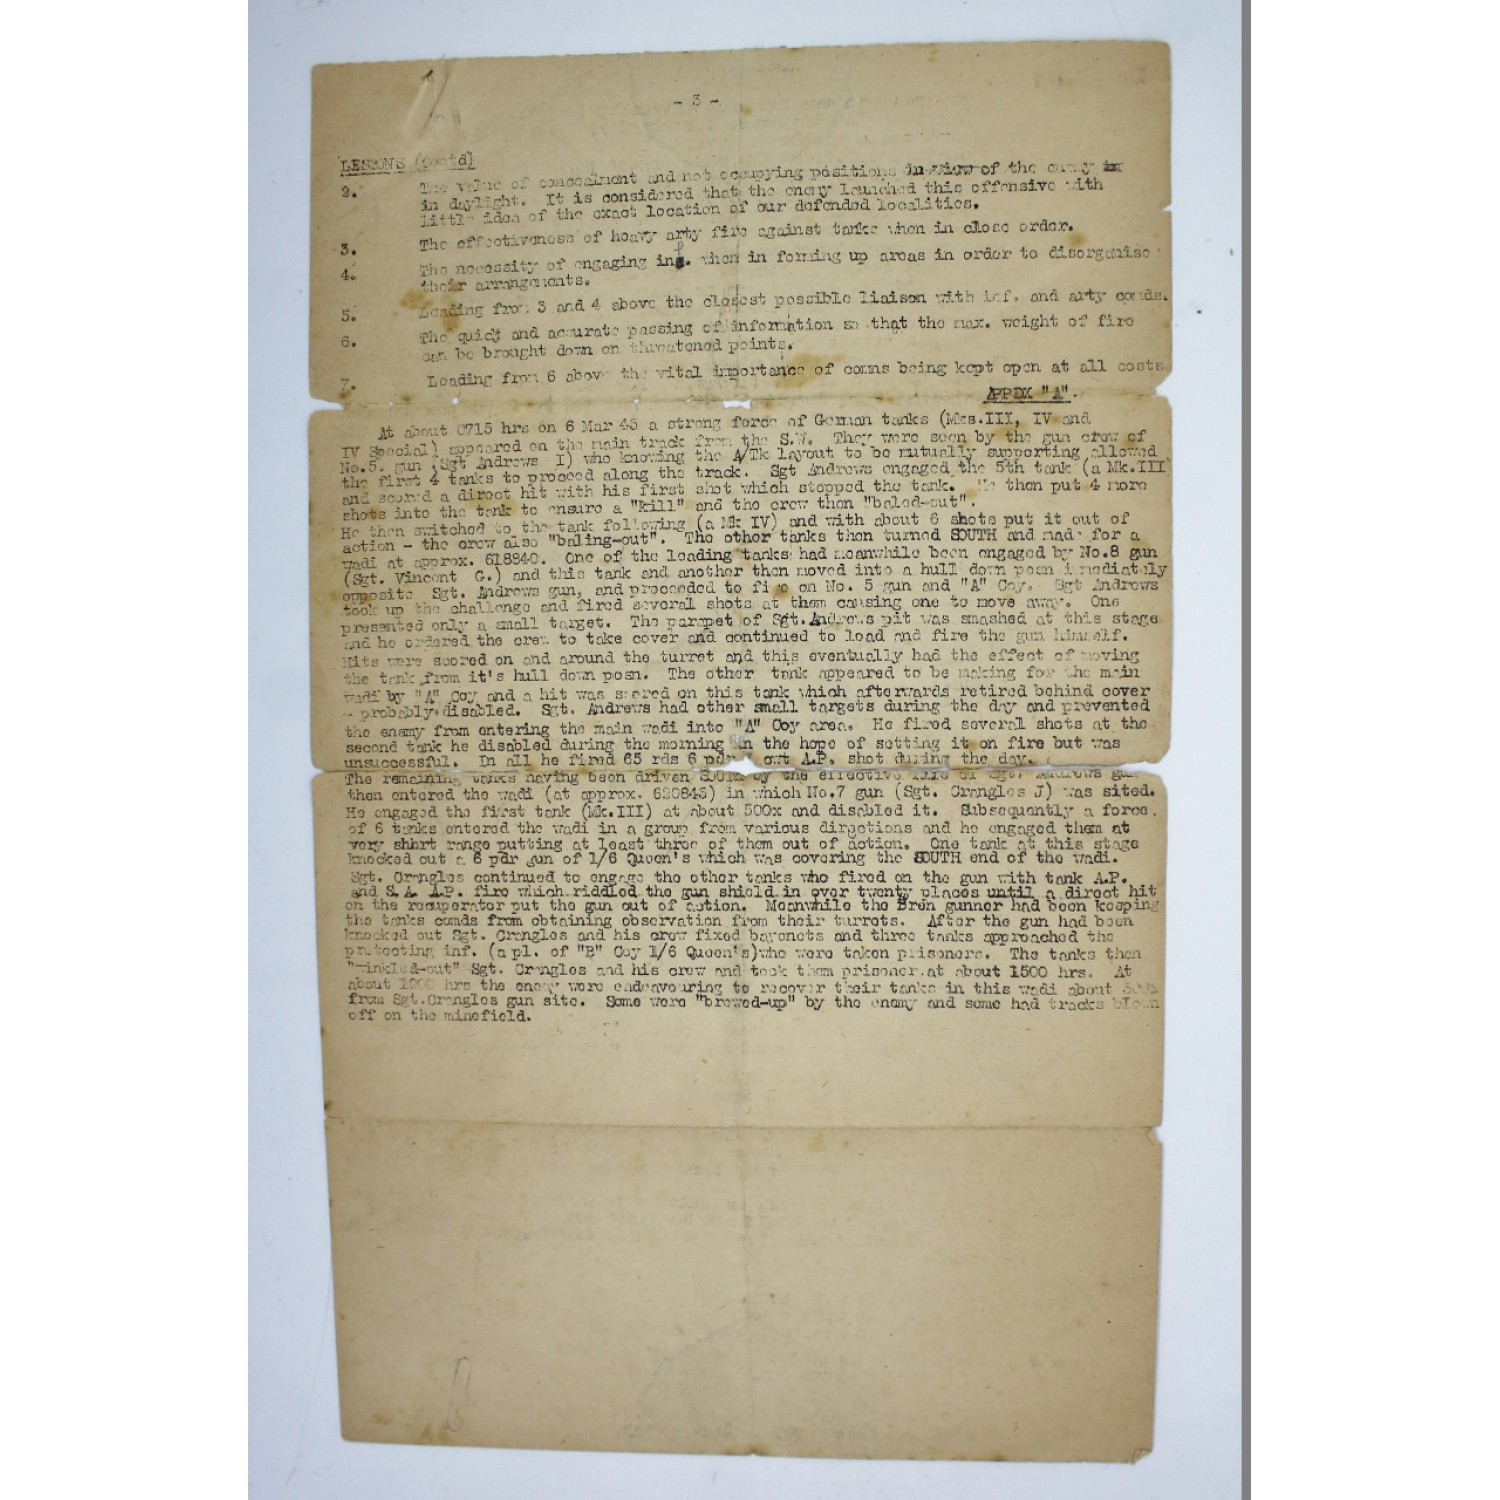 - 3 -
LESSONS (contd)
2. The value of concealment and not occupying positions in view of the enemy in
in daylight. It is considered that the enemy launched this offensive with
little idea of the exact location of our defended localities.
3. The effectiveness of heavy arty fire against tanks when in close order.
4. The necessity of engaging inf. when in forming up areas in order to disorganise
their arrangements.
5. Leading from 3 and 4 above the closest possible liaison with inf. and arty comds.
6. The quick and accurate passing of information so that the max. weight of fire
can be brought down on threatened points.
7. Leading from 6 above the vital importance of comns being kept open at all costs
APPDX "A".
At about 0715 hrs on 6 Mar 43 a strong force of German tanks (Mks.III, IV and
IV Special) appeared on the main track from the S.W. They were seen by the gun crew of
No.5. gun (Sgt Andrews I) who knowing the A/Tk layout to be mutually supporting allowed
the first 4 tanks to proceed along the track. Sgt Andrews engaged the 5th tank (a Mk.III)
and scored a direct hit with his first shot which stopped the tank. He then put 4 more
shots into the tank to ensure a "kill" and the crew then "baled-out".
He then switched to the tank following (a Mk IV) and with about 6 shots put it out of
action - the crew also "baling-out". The other tanks then turned SOUTH and made for a
wadi at approx. 618840. One of the leading tanks had meanwhile been engaged by No.8 gun
(Sgt. Vincent G.) and this tank and another then moved into a hull down posn immediately
opposite Sgt. Andrews gun, and proceeded to fire on No. 5 gun and "A" Coy. Sgt Andrews
took up the challenge and fired several shots at them causing one to move away. One
presented only a small target. The parapet of Sgt.Andrews pit was smashed at this stage
and he ordered the crew to take cover and continued to load and fire the gun himself.
Hits were scored on and around the turret and this eventually had the effect of moving
the tank from it's hull down posn. The other tank appeared to be making for the main
wadi by "A" Coy and a hit was scored on this tank which afterwards retired behind cover
- probably disabled. Sgt. Andrews had other small targets during the day and prevented
the enemy from entering the main wadi into "A" Coy area. He fired several shots at the
second tank he disabled during the morning in the hope of setting it on fire but was
unsuccessful. In all he fired 65 rds 6 pdr A.P. shot during the day.
The remaining tanks having been driven SOUTH by the effective fire of Sgt. Andrews gun
then entered the wadi (at approx. 620843) in which No.7 gun (Sgt. Crangles J) was sited.
He engaged the first tank (Mk.III) at about 500x and disabled it. Subsequently a force
of 6 tanks entered the wadi in a group from various directions and he engaged them at
very short range putting at least three of them out of action. One tank at this stage
knocked out a 6 pdr gun of 1/6 Queen's which was covering the SOUTH end of the wadi.
Sgt. Crangles continued to engage the other tanks who fired on the gun with tank A.P.
and S.A. A.P. fire which riddled the gun shield in over twenty places until a direct hit
on the recuperator put the gun out of action. Meanwhile the Bren gunner had been keeping
the tanks comds from obtaining observation from their turrets. After the gun had been
knocked out Sgt. Crangles and his crew fixed bayonets and three tanks approached the
protecting inf. (a pl. of "B" Coy 1/6 Queen's)who were taken prisoners. The tanks then
"winkled-out" Sgt. Crangles and his crew and took them prisoner at about 1500 hrs. At
about hrs the enemy were endeavouring to recover their tanks in this wadi about
from Sgt.Crangles gun site. Some were "brewed-up" by the enemy and some had tracks blown
off on the minefield.